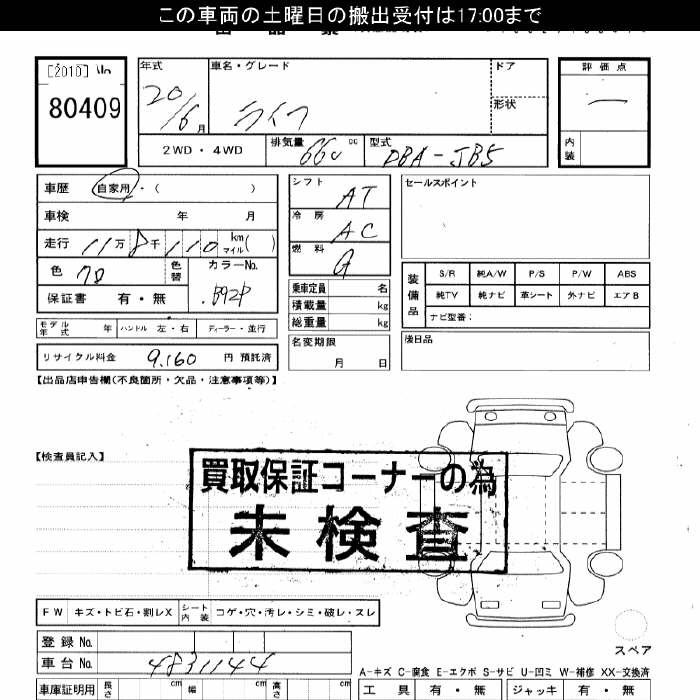 この車両の土曜日の搬出受付は17:00まで
[2010] No
80409
年式 20/6月
車名・グレード ライフ
ドア
形状
評価点 一
内装
2WD・4WD
排気量 660 cc
型式 DBA-JB5
車歴 自家用・( )
車検 年 月
走行 11万 8千 110 km マイル( )
色 クロ
色替
カラーNo. B92P
保証書 有・無
シフト AT
冷房 AC
燃料 G
乗車定員 名
積載量 kg
総重量 kg
名変期限
月 日
セールスポイント
装備品
S/R 純A/W P/S P/W ABS
純TV 純ナビ 革シート 外ナビ エアB
ナビ型番:
後日品
モデル年式 年 ハンドル 左・右 ディーラー・並行
リサイクル料金 9,160 円 預託済
【出品店申告欄(不良箇所・欠品・注意事項等)】
【検査員記入】
買取保証コーナーの為
未検査
FW キズ・トビ石・割レX
シート内装 コゲ・穴・汚レ・シミ・破レ・スレ
登録 No.
車台 No. 4831144
スペア
A-キズ C-腐食 E-エクボ S-サビ U-凹ミ W-補修 XX-交換済
車庫証明用 長さ cm 幅 cm 高さ cm
工具 有・無 ジャッキ 有・無